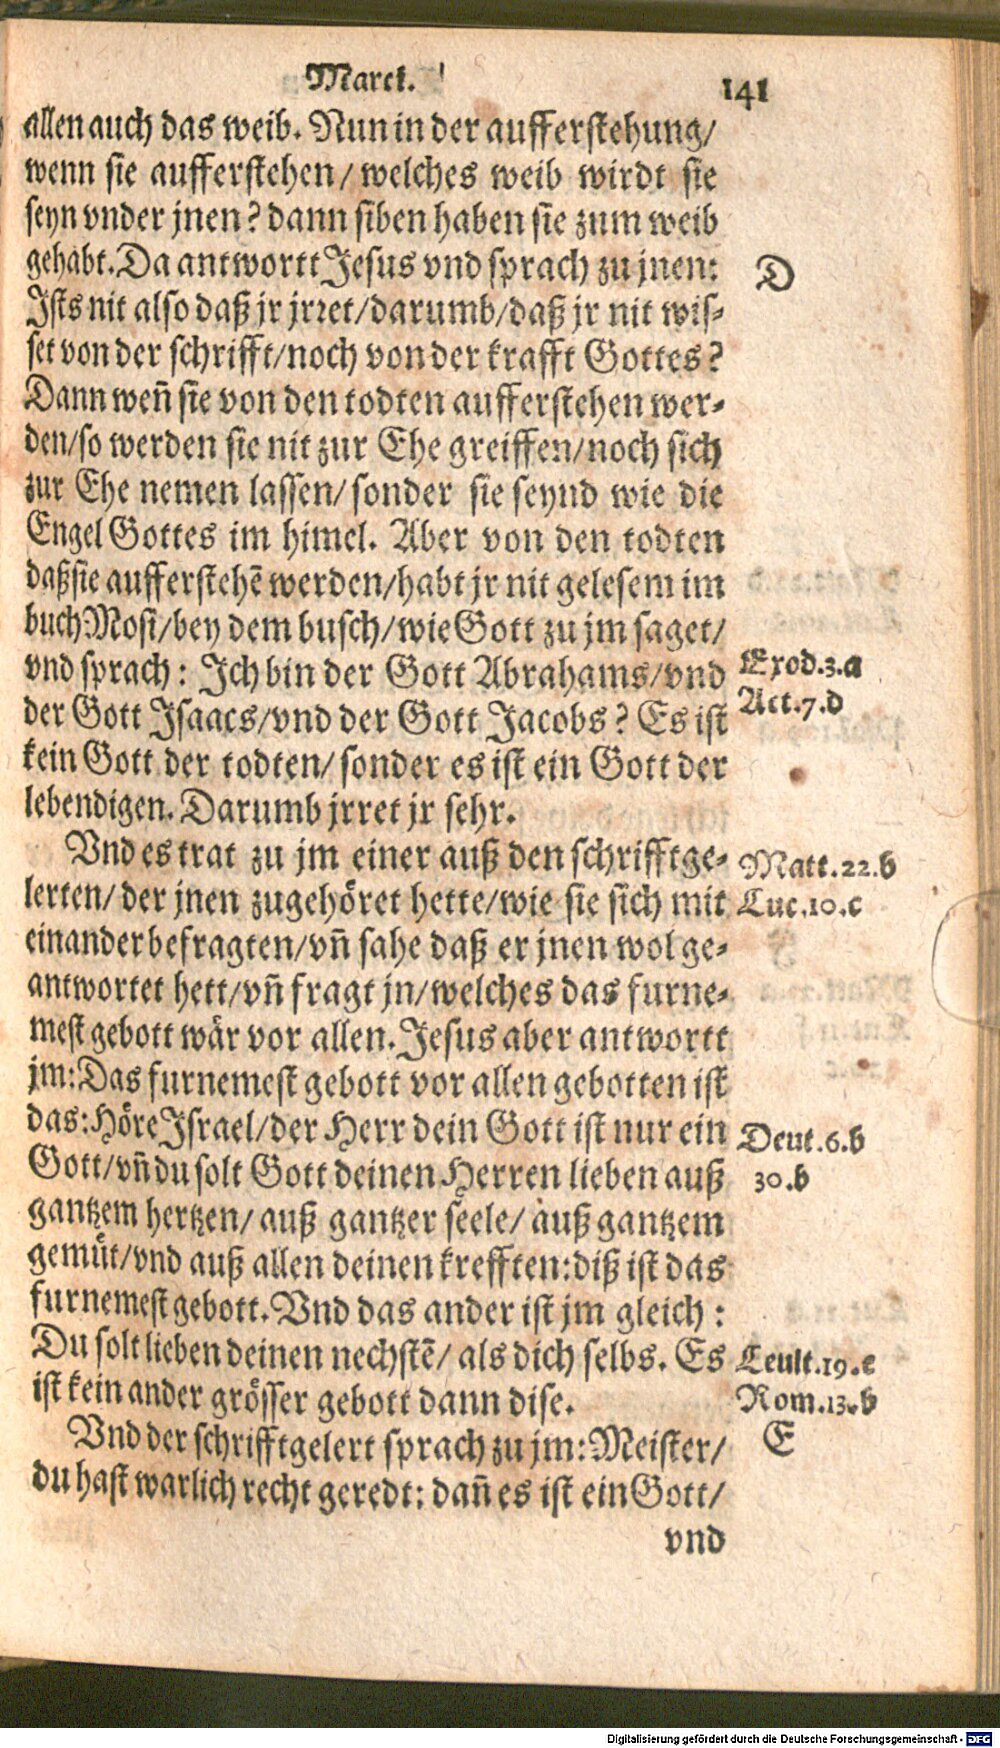 Marck. 141
allen auch das weib. Nun in der aufferstehung/
wenn sie aufferstehen/ welches weib wirdt sie
seyn vnder jnen? dann siben haben sie zum weib
gehabt. Da antwortt Jesus vnd sprach zu jnen: D
Ists nit also daß jr jrret/darumb/daß jr nit wis-
set von der schrifft/noch von der krafft Gottes?
Dann weñ sie von den todten aufferstehen wer-
den/so werden sie nit zur Ehe greiffen/noch sich
zur Ehe nemen lassen/ sonder sie seynd wie die
Engel Gottes im himel. Aber von den todten
daß sie aufferstehē werden/habt jr nit gelesem im
buch Mosi/bey dem busch/wie Gott zu jm saget/
vnd sprach: Ich bin der Gott Abrahams/vnd Exod.3.a
der Gott Isaacs/vnd der Gott Jacobs? Es ist Act.7.d
kein Gott der todten/ sonder es ist ein Gott der
lebendigen. Darumb jrret jr sehr.
Vnd es trat zu jm einer auß den schrifftge- Matt.22.b
lerten/ der jnen zugehöret hette/wie sie sich mit Luc.10.c
einander befragten/vñ sahe daß er jnen wol ge-
antwortet hett/vñ fragt jn/welches das furne-
mest gebott wär vor allen. Jesus aber antwortt
jm: Das furnemest gebott vor allen gebotten ist
das: Höre Israel/der Herr dein Gott ist nur ein Deut.6.b
Gott/vñ du solt Gott deinen Herren lieben auß 30.b
gantzem hertzen/ auß gantzer seele/ auß gantzem
gemüt/vnd auß allen deinen krefften: diß ist das
furnemest gebott. Vnd das ander ist jm gleich:
Du solt lieben deinen nechstē/ als dich selbs. Es Leuit.19.e
ist kein ander grösser gebott dann dise. Rom.13.b
Vnd der schrifftgelert sprach zu jm: Meister/ E
du hast warlich recht geredt: dañ es ist ein Gott/
vnd
Digitalisierung gefördert durch die Deutsche Forschungsgemeinschaft - DFG